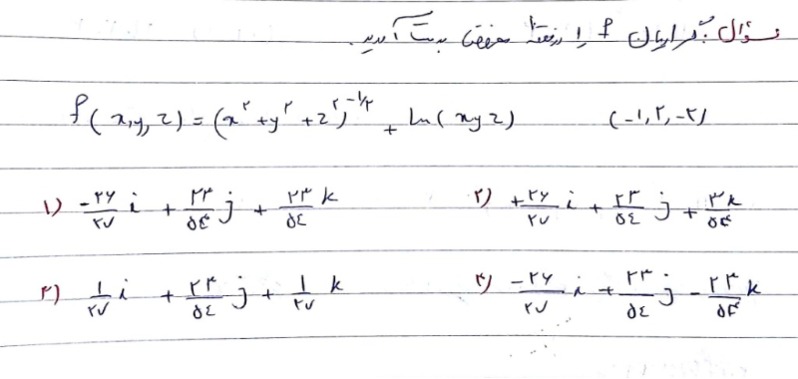 سؤال: گرادیان f را در نقطهٔ بدست آورید.
f(x,y,z) = (x^۲ + y^۲ + z^۲)^{-۱/۲} + ln(xyz) (-۱,۲,-۲)
۱) -۲۶/۲۷ i + ۲۳/۵۴ j + ۲۳/۵۴ k ۲) +۲۶/۲۷ i + ۲۳/۵۴ j + ۳/۵۴ k
۳) ۱/۲۷ i + ۲۳/۵۴ j + ۱/۲۷ k ۴) -۲۶/۲۷ i + ۲۳/۵۴ j - ۲۳/۵۴ k